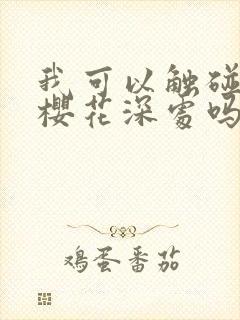 我可以触碰
樱花深处吗
鸡蛋番茄